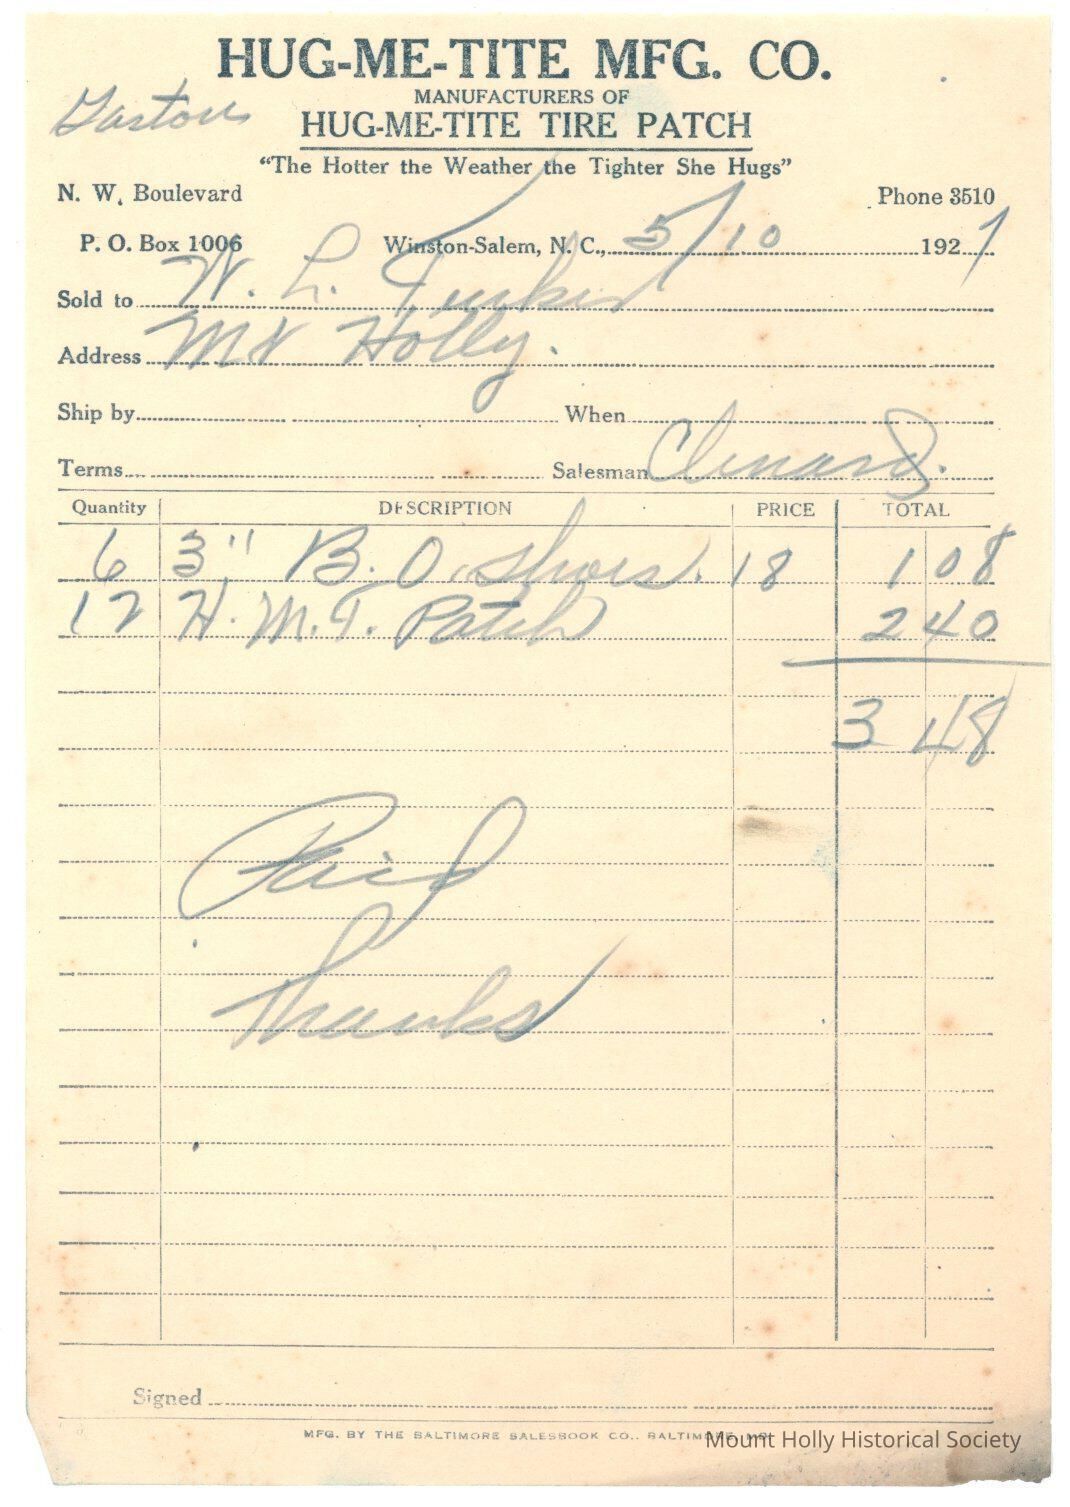 HUG-ME-TITE MFG. CO.
MANUFACTURERS OF
Gaston
HUG-ME-TITE TIRE PATCH
"The Hotter the Weather the Tighter She Hugs"
N. W. Boulevard Phone 3510
P. O. Box 1006 Winston-Salem, N. C., 5/10 1927
Sold to W. L.
Address Mt Holly.
Ship by When
Terms Salesman Clinard.
Quantity DESCRIPTION PRICE TOTAL
6 3" B. O. Shoes. 18 1 08
12 H. M. T. Patch 2 40
3 48
Paid
Thanks
Signed
MFG. BY THE BALTIMORE SALESBOOK CO., BALTIMORE, MD.
Mount Holly Historical Society